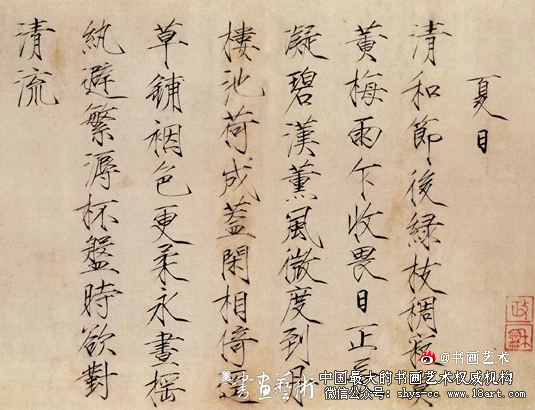 夏日
清和節後綠枝稠寂
黃梅雨乍收畏日正長
凝碧漢薰風微度到丹
樓池荷成蓋閑相倚逕
草鋪裀色更柔永晝搖
紈避繁溽杯盤時欲對
清流
政龢
@书画艺术
書畫藝術
中国最大的书画艺术权威机构
微信公众号：shys-cc www.18art.com